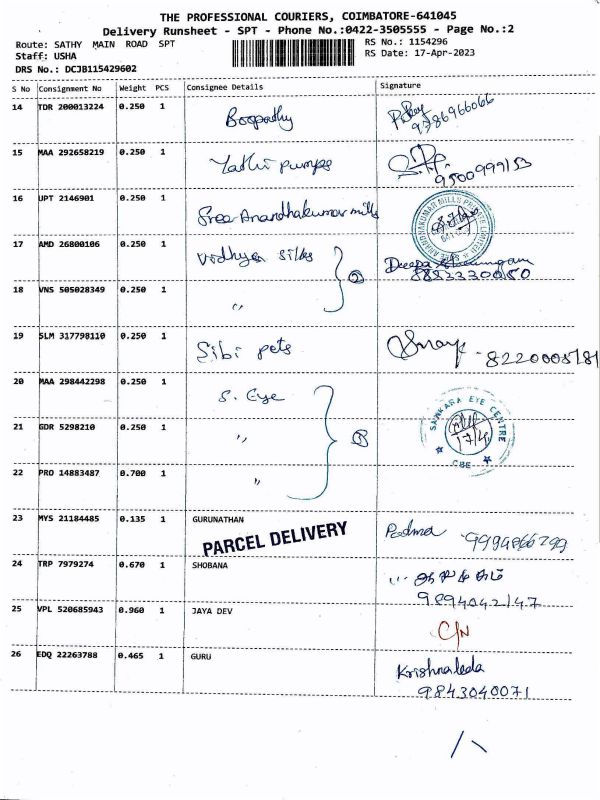 THE PROFESSIONAL COURIERS, COIMBATORE-641045
Delivery Runsheet - SPT - Phone No.:0422-3505555 - Page No.:2
Route: SATHY MAIN ROAD SPT
RS No.: 1154296
Staff: USHA
RS Date: 17-Apr-2023
DRS No.: DCJB115429602
S No Consignment No Weight PCS Consignee Details Signature
14 TDR 200013224 0.250 1 Boopathy
9786966066
15 MAA 292658219 0.250 1 Yathi pumps
9500999153
16 UPT 2146901 0.250 1 Sree Anandhakumar mills
17 AMD 26800106 0.250 1 Vidhya silks Deepa
②
18 VNS 505028349 0.250 1 "
19 SLM 317798110 0.250 1 Sibi pets
8220005781
20 MAA 298442298 0.250 1 S. Eye
SANKARA EYE CENTRE
17/4
CBE
21 GDR 5298210 0.250 1 "
③
22 PRO 14883487 0.700 1 "
23 MYS 21184485 0.135 1 GURUNATHAN Padma
9994866299
PARCEL DELIVERY
24 TRP 7979274 0.670 1 SHOBANA
9894042147
25 VPL 520685943 0.960 1 JAYA DEV
C/N
26 EDQ 22263788 0.465 1 GURU Krishnaleda
9843040071